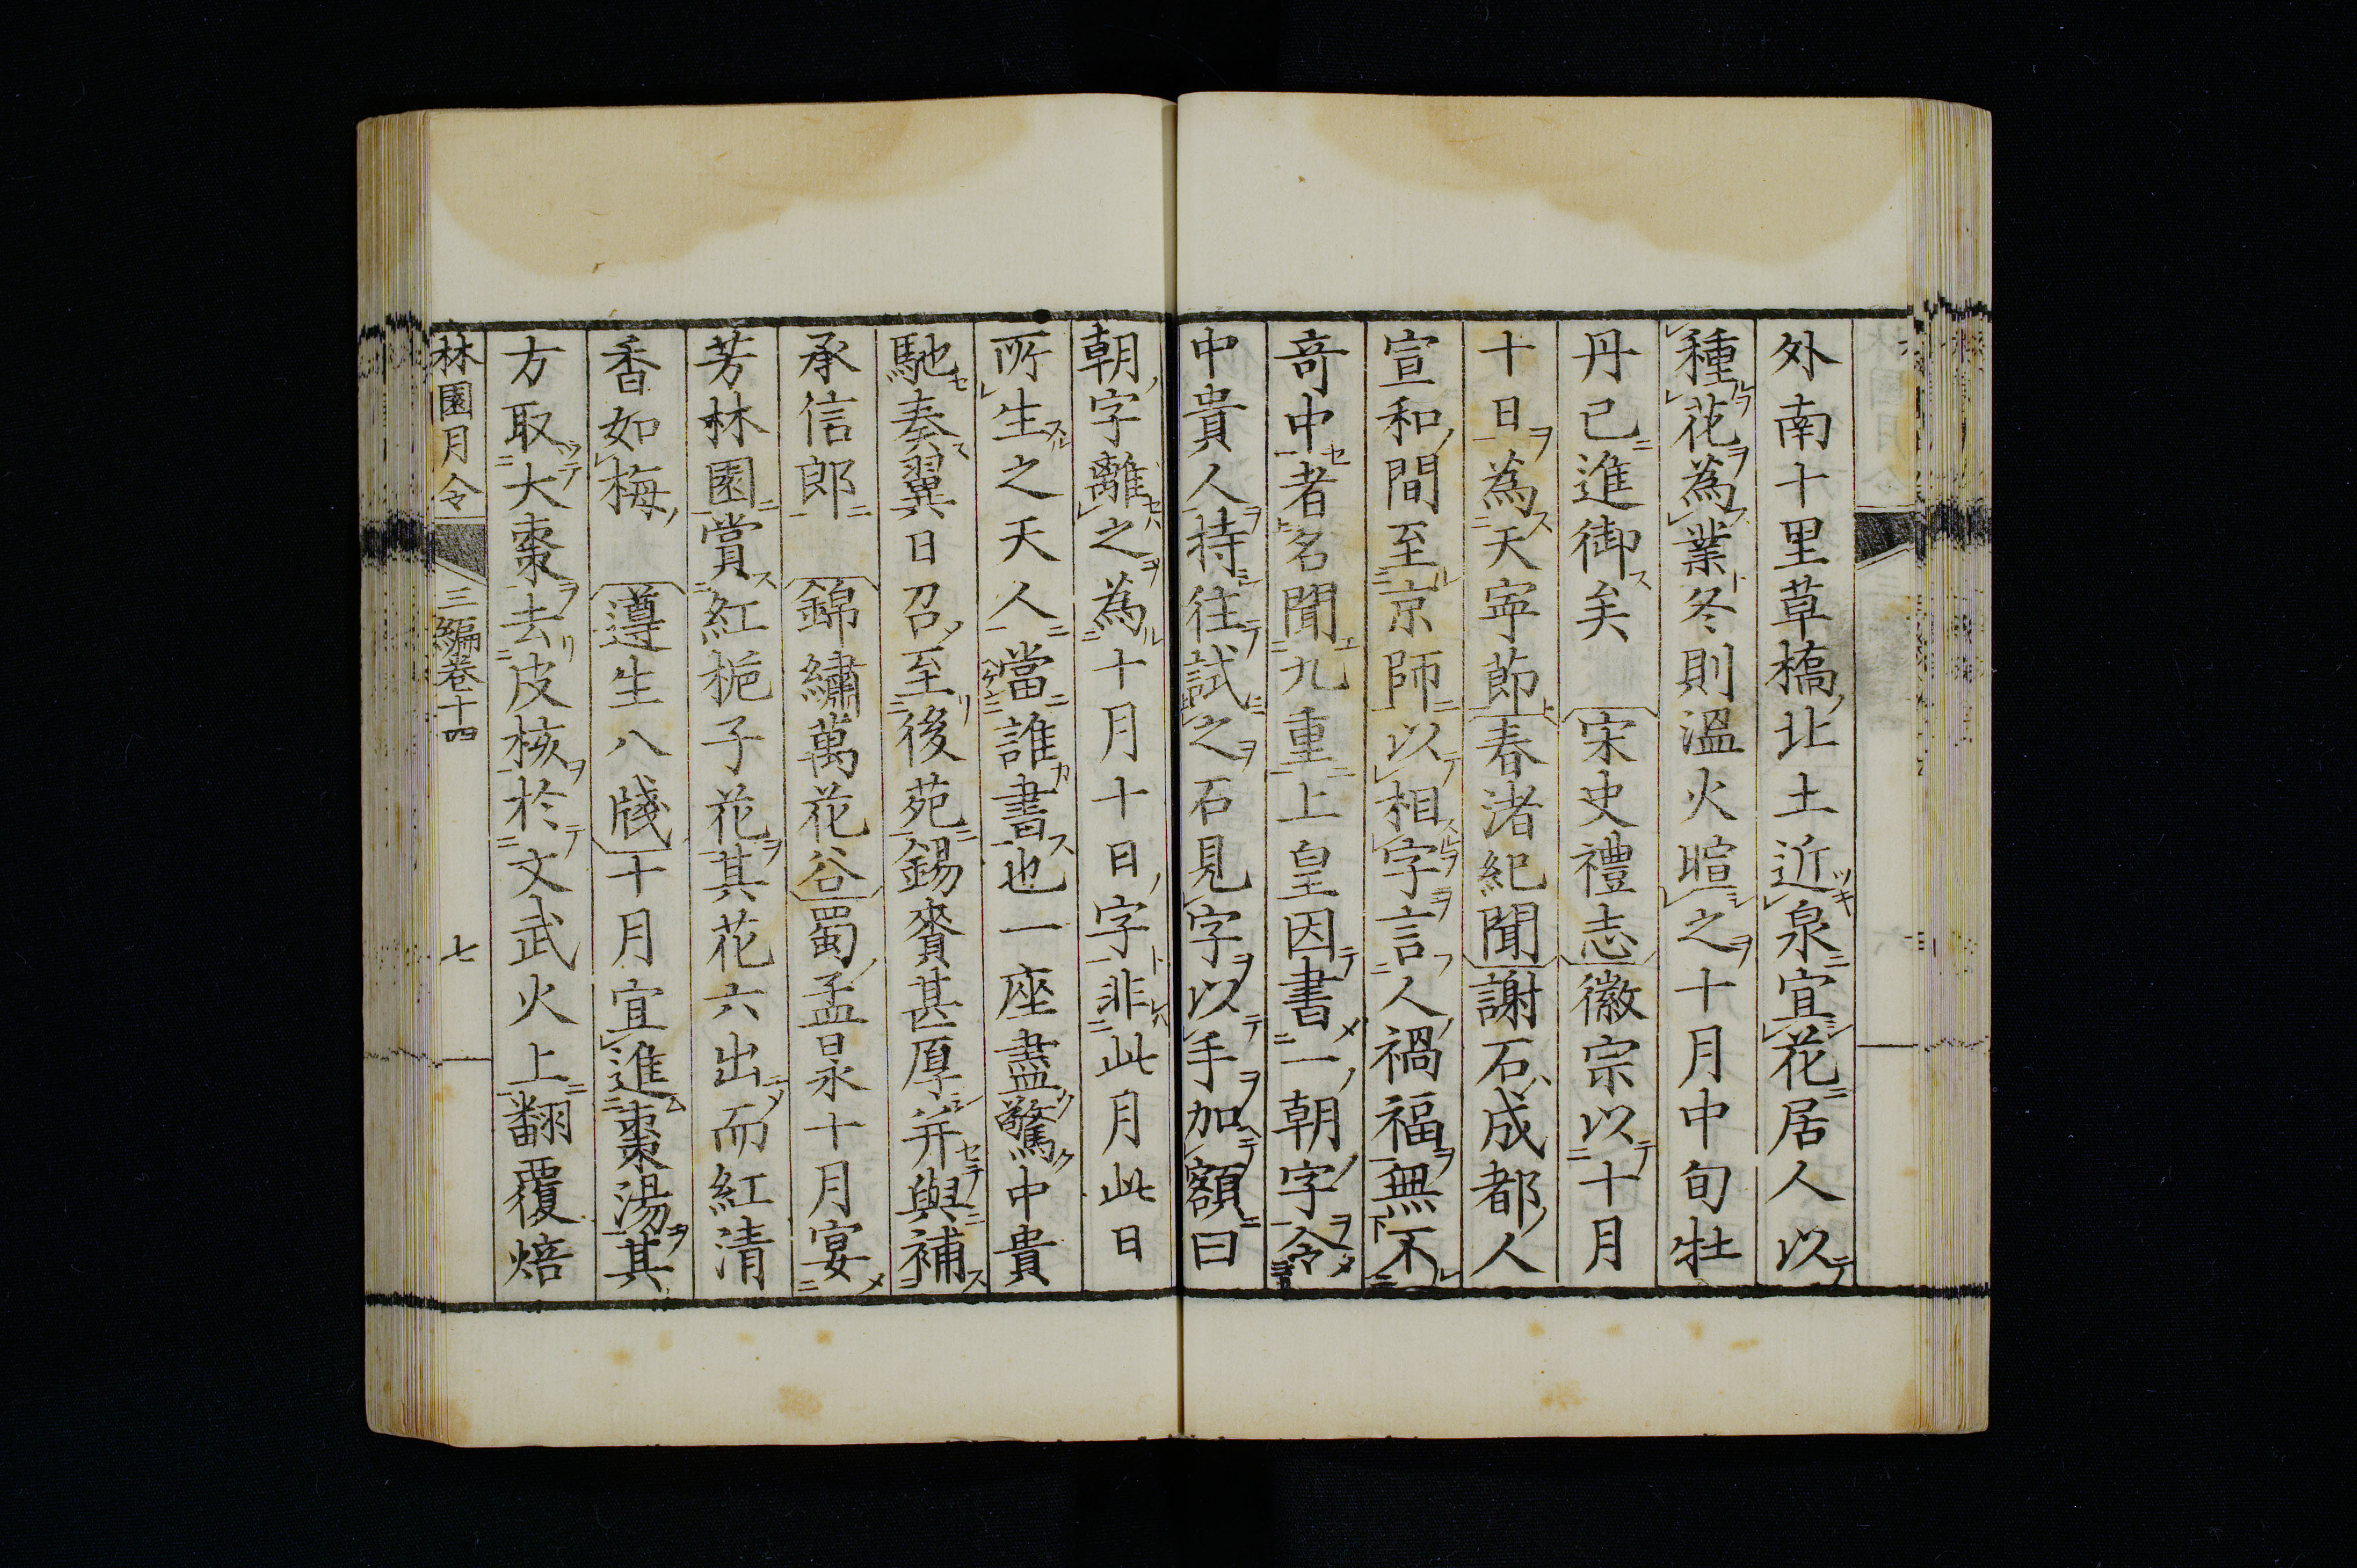 外南十里草橋北土近泉宜花居人以
種花為業冬則溫火暄之十月中旬牡
丹已進御矣　宋史禮志徽宗以十月
十日為天寧節春渚紀聞謝石成都人
宣和間至京師以相字言人禍福無不
竒中者名聞九重上皇因書一朝字令
中貴人持往試之石見字以手加額曰
朝字離之為十月十日字非此月此日
所生之天人當誰書也一座盡驚中貴
馳奏翼日召至後苑錫賚甚厚并與補
承信郎　錦繡萬花谷蜀孟昶十月宴
芳林園賞紅梔子花其花六出而紅清
香如梅　遵生八牋十月宜進棗湯其
方取大棗去皮核於文武火上翻覆焙
林園月令　三編卷十四　七